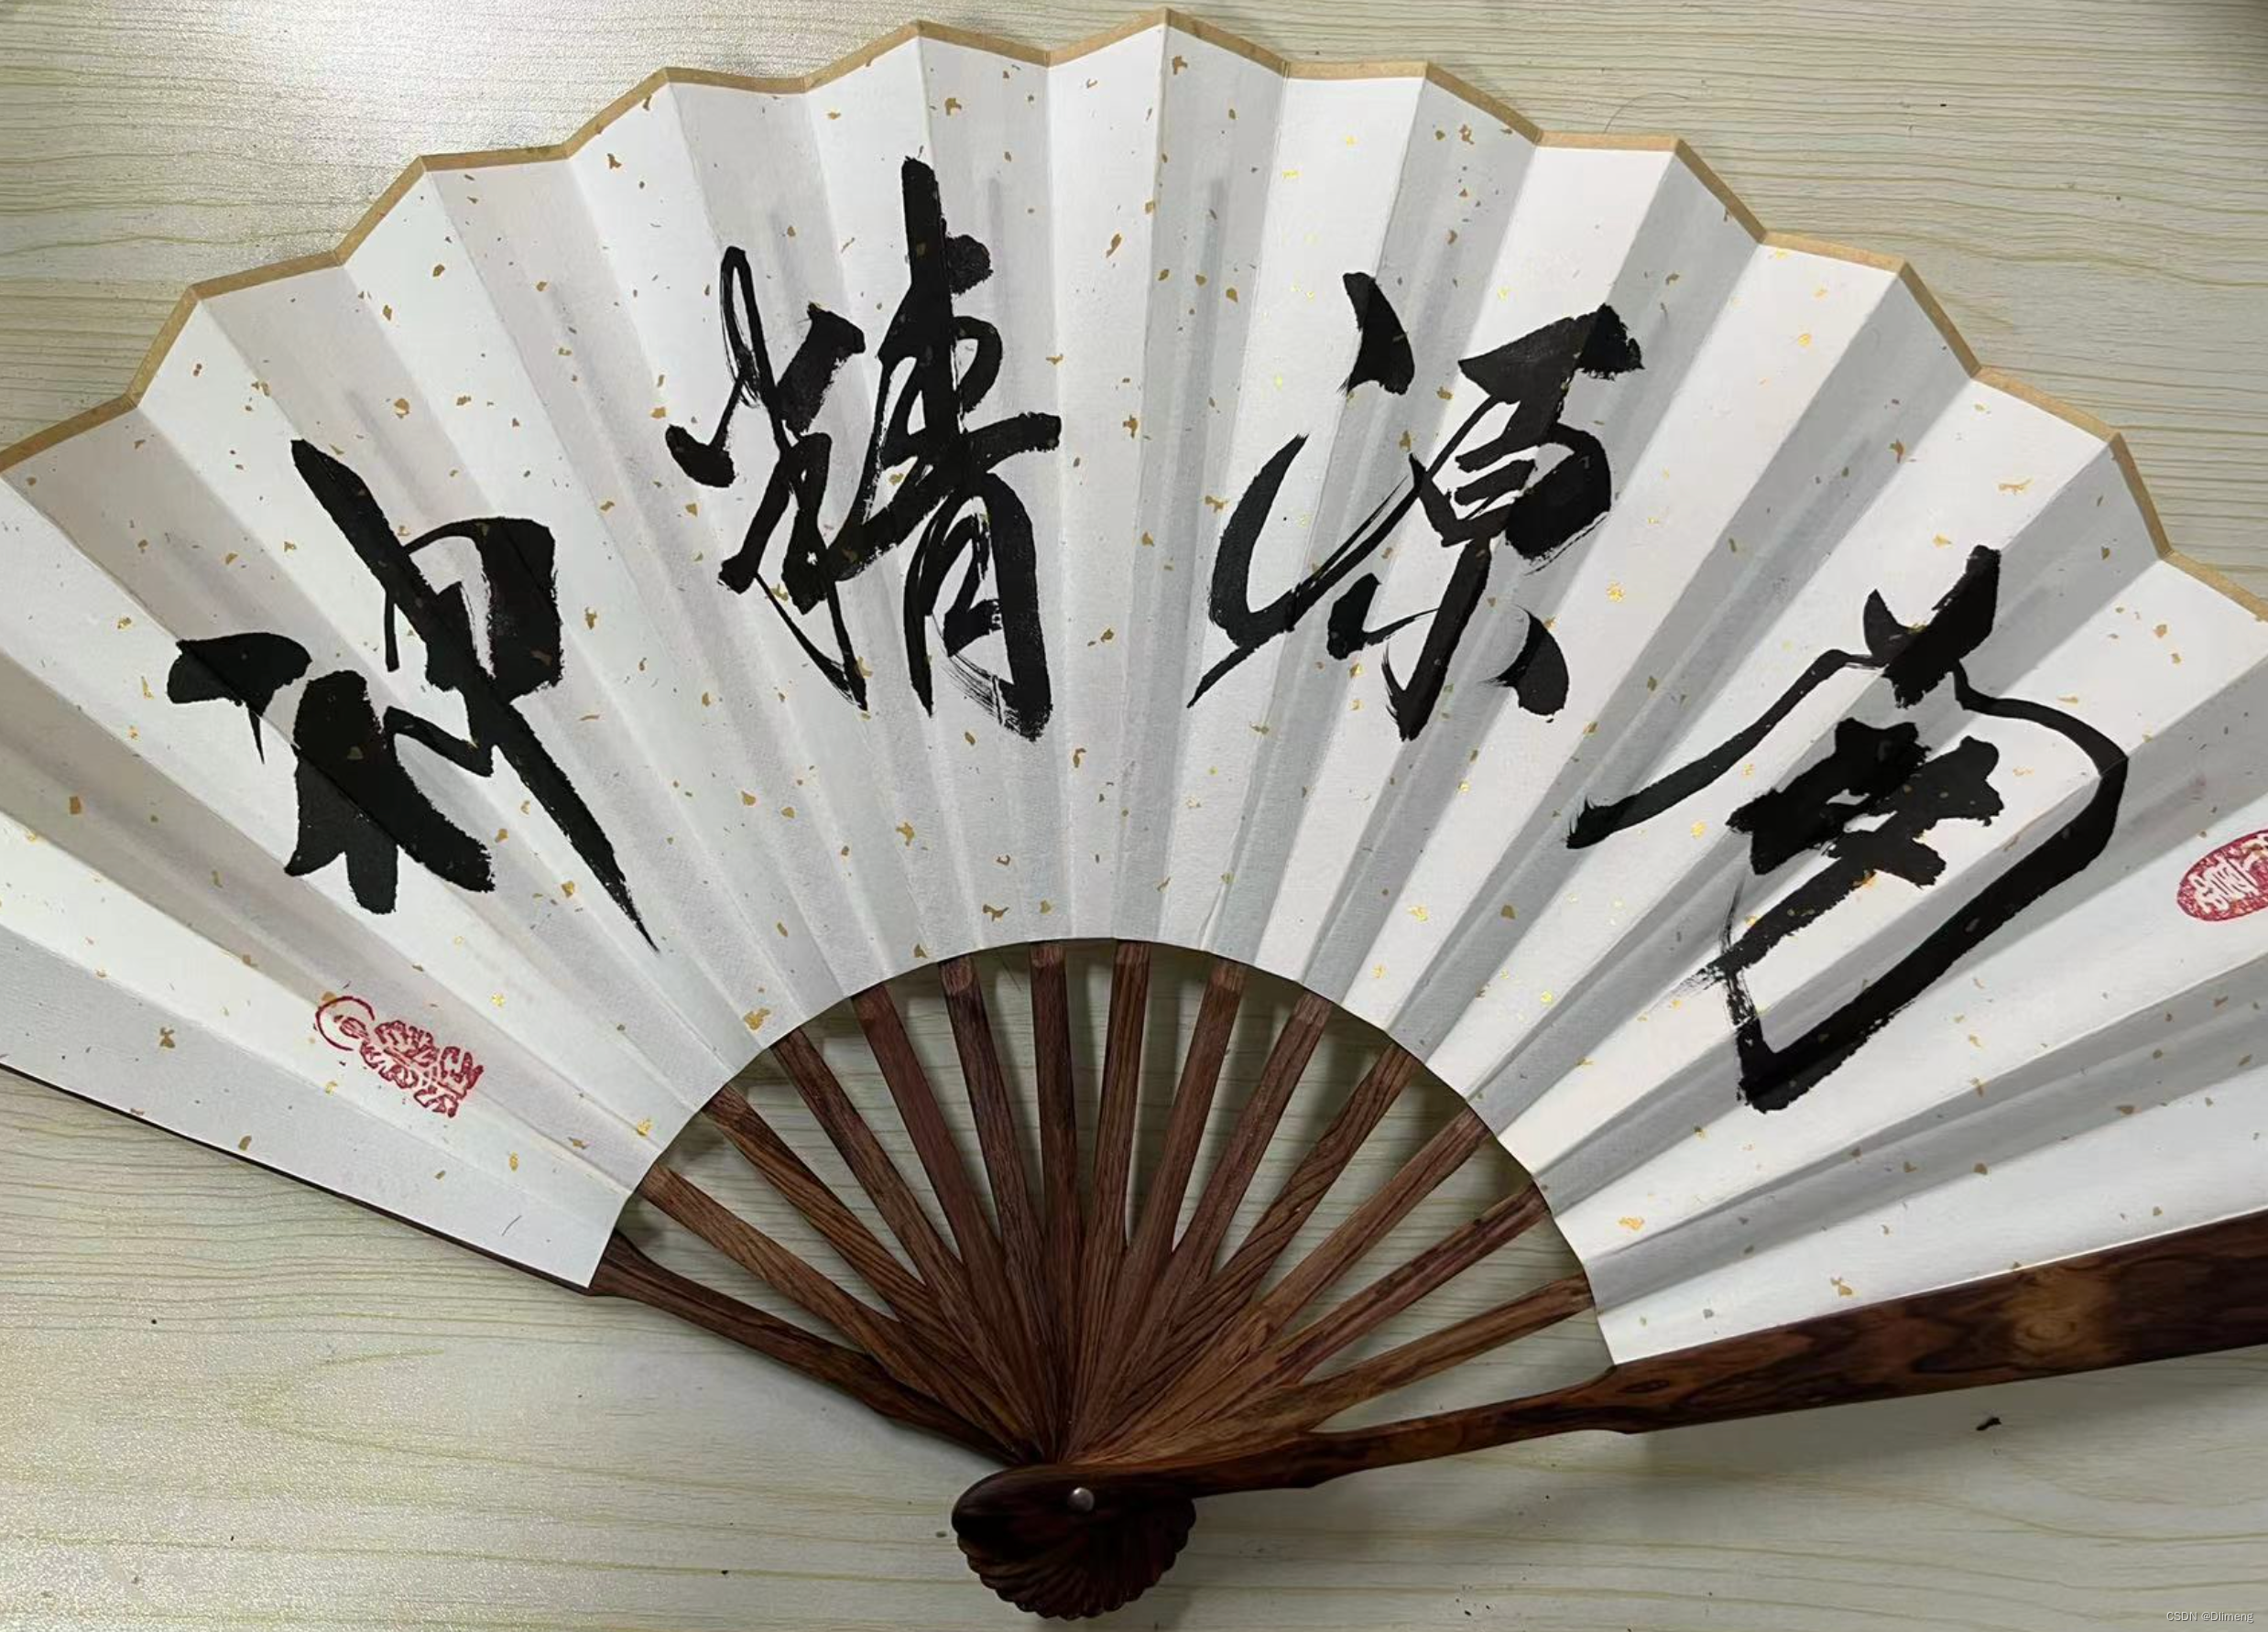 南源精神
CSDN @Dlimeng